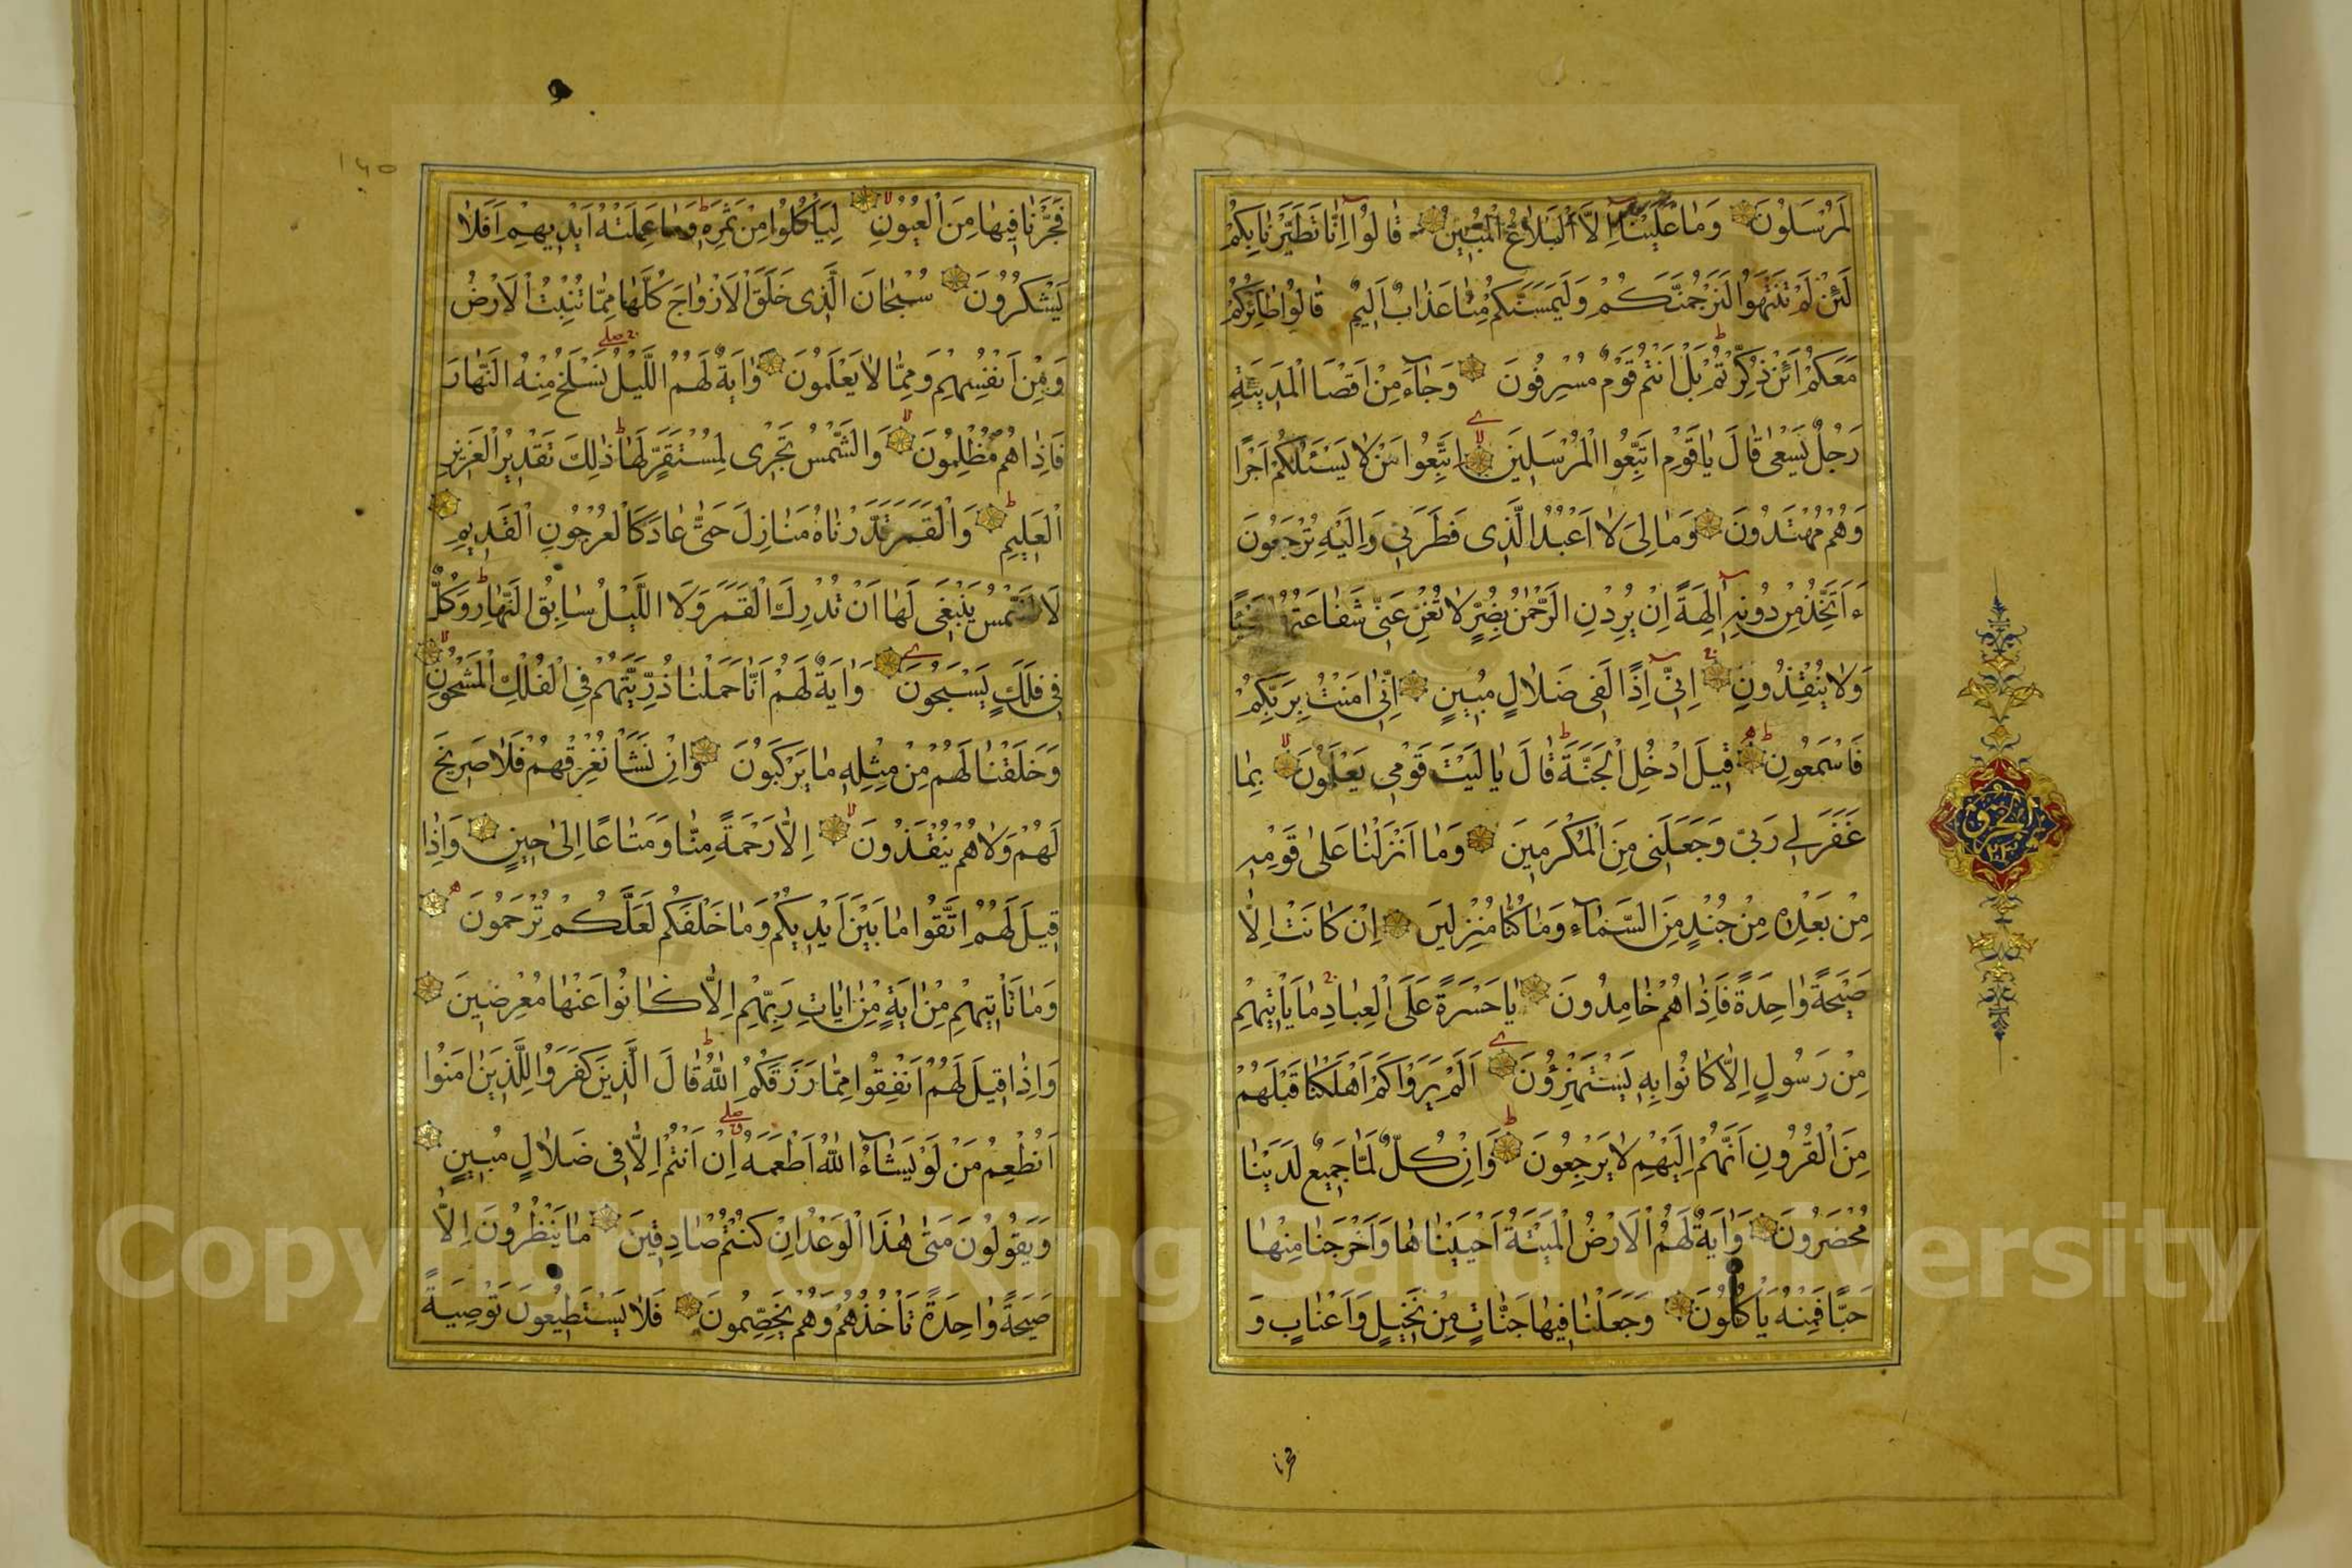 لَمُرْسَلُونَ وَمَا عَلَيْنَا إِلَّا الْبَلَاغُ الْمُبِينُ قَالُوا إِنَّا تَطَيَّرْنَا بِكُمْ
لَئِنْ لَمْ تَنْتَهُوا لَنَرْجُمَنَّكُمْ وَلَيَمَسَّنَّكُمْ مِنَّا عَذَابٌ أَلِيمٌ قَالُوا طَائِرُكُمْ
مَعَكُمْ أَئِنْ ذُكِّرْتُمْ بَلْ أَنْتُمْ قَوْمٌ مُسْرِفُونَ وَجَاءَ مِنْ أَقْصَا الْمَدِينَةِ
رَجُلٌ يَسْعَى قَالَ يَا قَوْمِ اتَّبِعُوا الْمُرْسَلِينَ اتَّبِعُوا مَنْ لَا يَسْئَلُكُمْ أَجْرًا
وَهُمْ مُهْتَدُونَ وَمَا لِيَ لَا أَعْبُدُ الَّذِى فَطَرَنِي وَإِلَيْهِ تُرْجَعُونَ
ءَأَتَّخِذُ مِنْ دُونِهِ آلِهَةً إِنْ يُرِدْنِ الرَّحْمٰنُ بِضُرٍّ لَا تُغْنِ عَنِّى شَفَاعَتُهُمْ شَيْئًا
وَلَا يُنْقِذُونِ إِنِّى إِذًا لَفِى ضَلَالٍ مُبِينٍ إِنِّى امَنْتُ بِرَبِّكُمْ
فَاسْمَعُونِ قِيلَ ادْخُلِ الْجَنَّةَ قَالَ يَا لَيْتَ قَوْمِى يَعْلَمُونَ بِمَا
غَفَرَ لِى رَبِّى وَجَعَلَنِى مِنَ الْمُكْرَمِينَ وَمَا أَنْزَلْنَا عَلَى قَوْمِهِ
مِنْ بَعْدِهِ مِنْ جُنْدٍ مِنَ السَّمَاءِ وَمَا كُنَّا مُنْزِلِينَ إِنْ كَانَتْ إِلَّا
صَيْحَةً وَاحِدَةً فَإِذَا هُمْ خَامِدُونَ يَا حَسْرَةً عَلَى الْعِبَادِ مَا يَأْتِيهِمْ
مِنْ رَسُولٍ إِلَّا كَانُوا بِهِ يَسْتَهْزِؤُنَ أَلَمْ يَرَوْا كَمْ أَهْلَكْنَا قَبْلَهُمْ
مِنَ الْقُرُونِ أَنَّهُمْ إِلَيْهِمْ لَا يَرْجِعُونَ وَإِنْ كُلٌّ لَمَّا جَمِيعٌ لَدَيْنَا
مُحْضَرُونَ وَايَةٌ لَهُمُ الْأَرْضُ الْمَيْتَةُ أَحْيَيْنَاهَا وَأَخْرَجْنَا مِنْهَا
حَبًّا فَمِنْهُ يَأْكُلُونَ وَجَعَلْنَا فِيهَا جَنَّاتٍ مِنْ نَخِيلٍ وَأَعْنَابٍ وَ
فَجَّرْنَا فِيهَا مِنَ الْعُيُونِ لِيَأْكُلُوا مِنْ ثَمَرِهِ وَمَا عَمِلَتْهُ أَيْدِيهِمْ أَفَلَا
يَشْكُرُونَ سُبْحَانَ الَّذِى خَلَقَ الْأَزْوَاجَ كُلَّهَا مِمَّا تُنْبِتُ الْأَرْضُ
وَمِنْ أَنْفُسِهِمْ وَمِمَّا لَا يَعْلَمُونَ وَايَةٌ لَهُمُ اللَّيْلُ نَسْلَخُ مِنْهُ النَّهَارَ
فَإِذَا هُمْ مُظْلِمُونَ وَالشَّمْسُ تَجْرِى لِمُسْتَقَرٍّ لَهَا ذَلِكَ تَقْدِيرُ الْعَزِيزِ
الْعَلِيمِ وَالْقَمَرَ قَدَّرْنَاهُ مَنَازِلَ حَتَّى عَادَ كَالْعُرْجُونِ الْقَدِيمِ
لَا الشَّمْسُ يَنْبَغِى لَهَا أَنْ تُدْرِكَ الْقَمَرَ وَلَا اللَّيْلُ سَابِقُ النَّهَارِ وَكُلٌّ
فِى فَلَكٍ يَسْبَحُونَ وَايَةٌ لَهُمْ أَنَّا حَمَلْنَا ذُرِّيَّتَهُمْ فِى الْفُلْكِ الْمَشْحُونِ
وَخَلَقْنَا لَهُمْ مِنْ مِثْلِهِ مَا يَرْكَبُونَ وَإِنْ نَشَأْ نُغْرِقْهُمْ فَلَا صَرِيخَ
لَهُمْ وَلَا هُمْ يُنْقَذُونَ إِلَّا رَحْمَةً مِنَّا وَمَتَاعًا إِلَى حِينٍ وَإِذَا
قِيلَ لَهُمُ اتَّقُوا مَا بَيْنَ أَيْدِيكُمْ وَمَا خَلْفَكُمْ لَعَلَّكُمْ تُرْحَمُونَ
وَمَا تَأْتِيهِمْ مِنْ ايَةٍ مِنْ ايَاتِ رَبِّهِمْ إِلَّا كَانُوا عَنْهَا مُعْرِضِينَ
وَإِذَا قِيلَ لَهُمْ أَنْفِقُوا مِمَّا رَزَقَكُمُ اللّٰهُ قَالَ الَّذِينَ كَفَرُوا لِلَّذِينَ امَنُوا
أَنُطْعِمُ مَنْ لَوْ يَشَاءُ اللّٰهُ أَطْعَمَهُ إِنْ أَنْتُمْ إِلَّا فِى ضَلَالٍ مُبِينٍ
وَيَقُولُونَ مَتَى هٰذَا الْوَعْدُ إِنْ كُنْتُمْ صَادِقِينَ مَا يَنْظُرُونَ إِلَّا
صَيْحَةً وَاحِدَةً تَأْخُذُهُمْ وَهُمْ يَخِصِّمُونَ فَلَا يَسْتَطِيعُونَ تَوْصِيَةً
Copyright © King Saud University